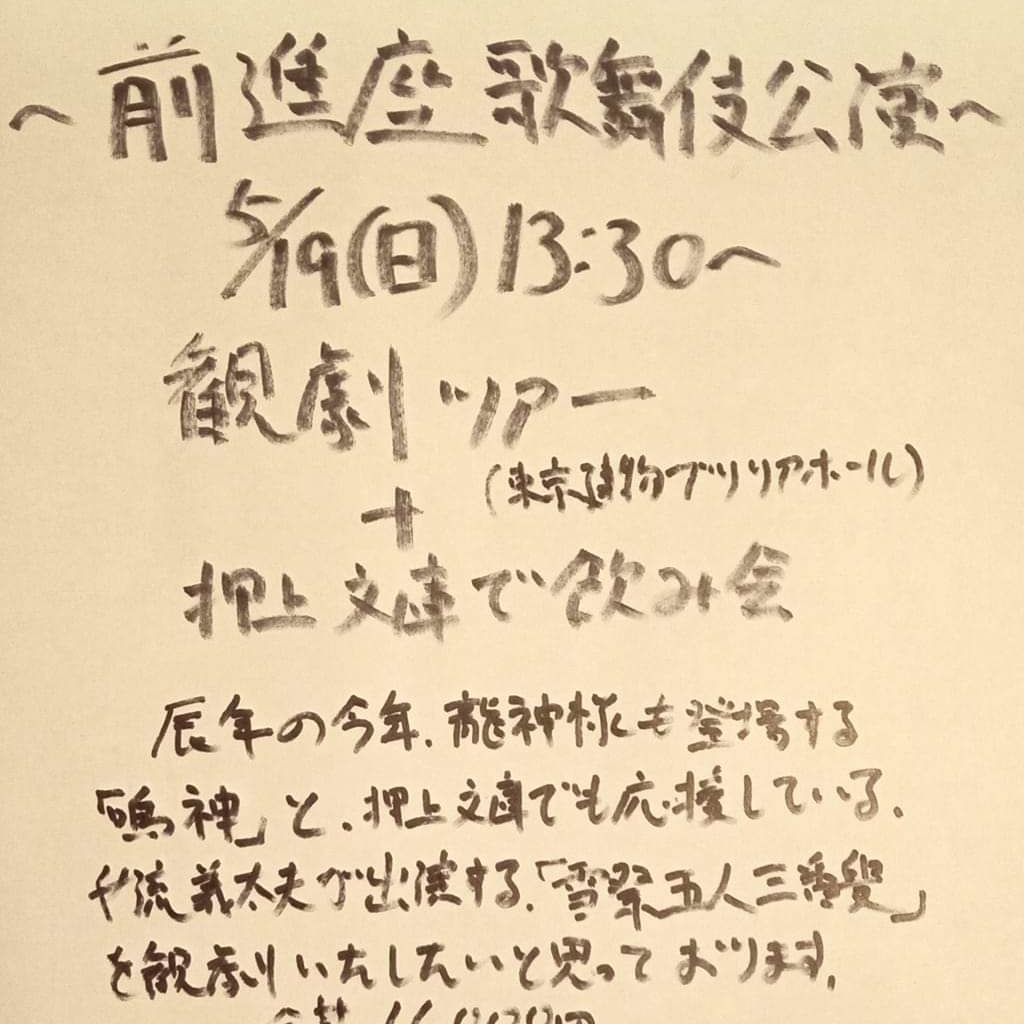 ～前進座歌舞伎公演～
5/19(日)13:30～
観劇ツアー
(東京建物ブリリアホール)
+
押上文庫で飲み会
辰年の今年、龍神様も登場する
「鳴神」と、押上文庫でも応援している、
女流義太夫が出演する、「雪祭五人三番叟」
を観劇いたしたいと思っております。